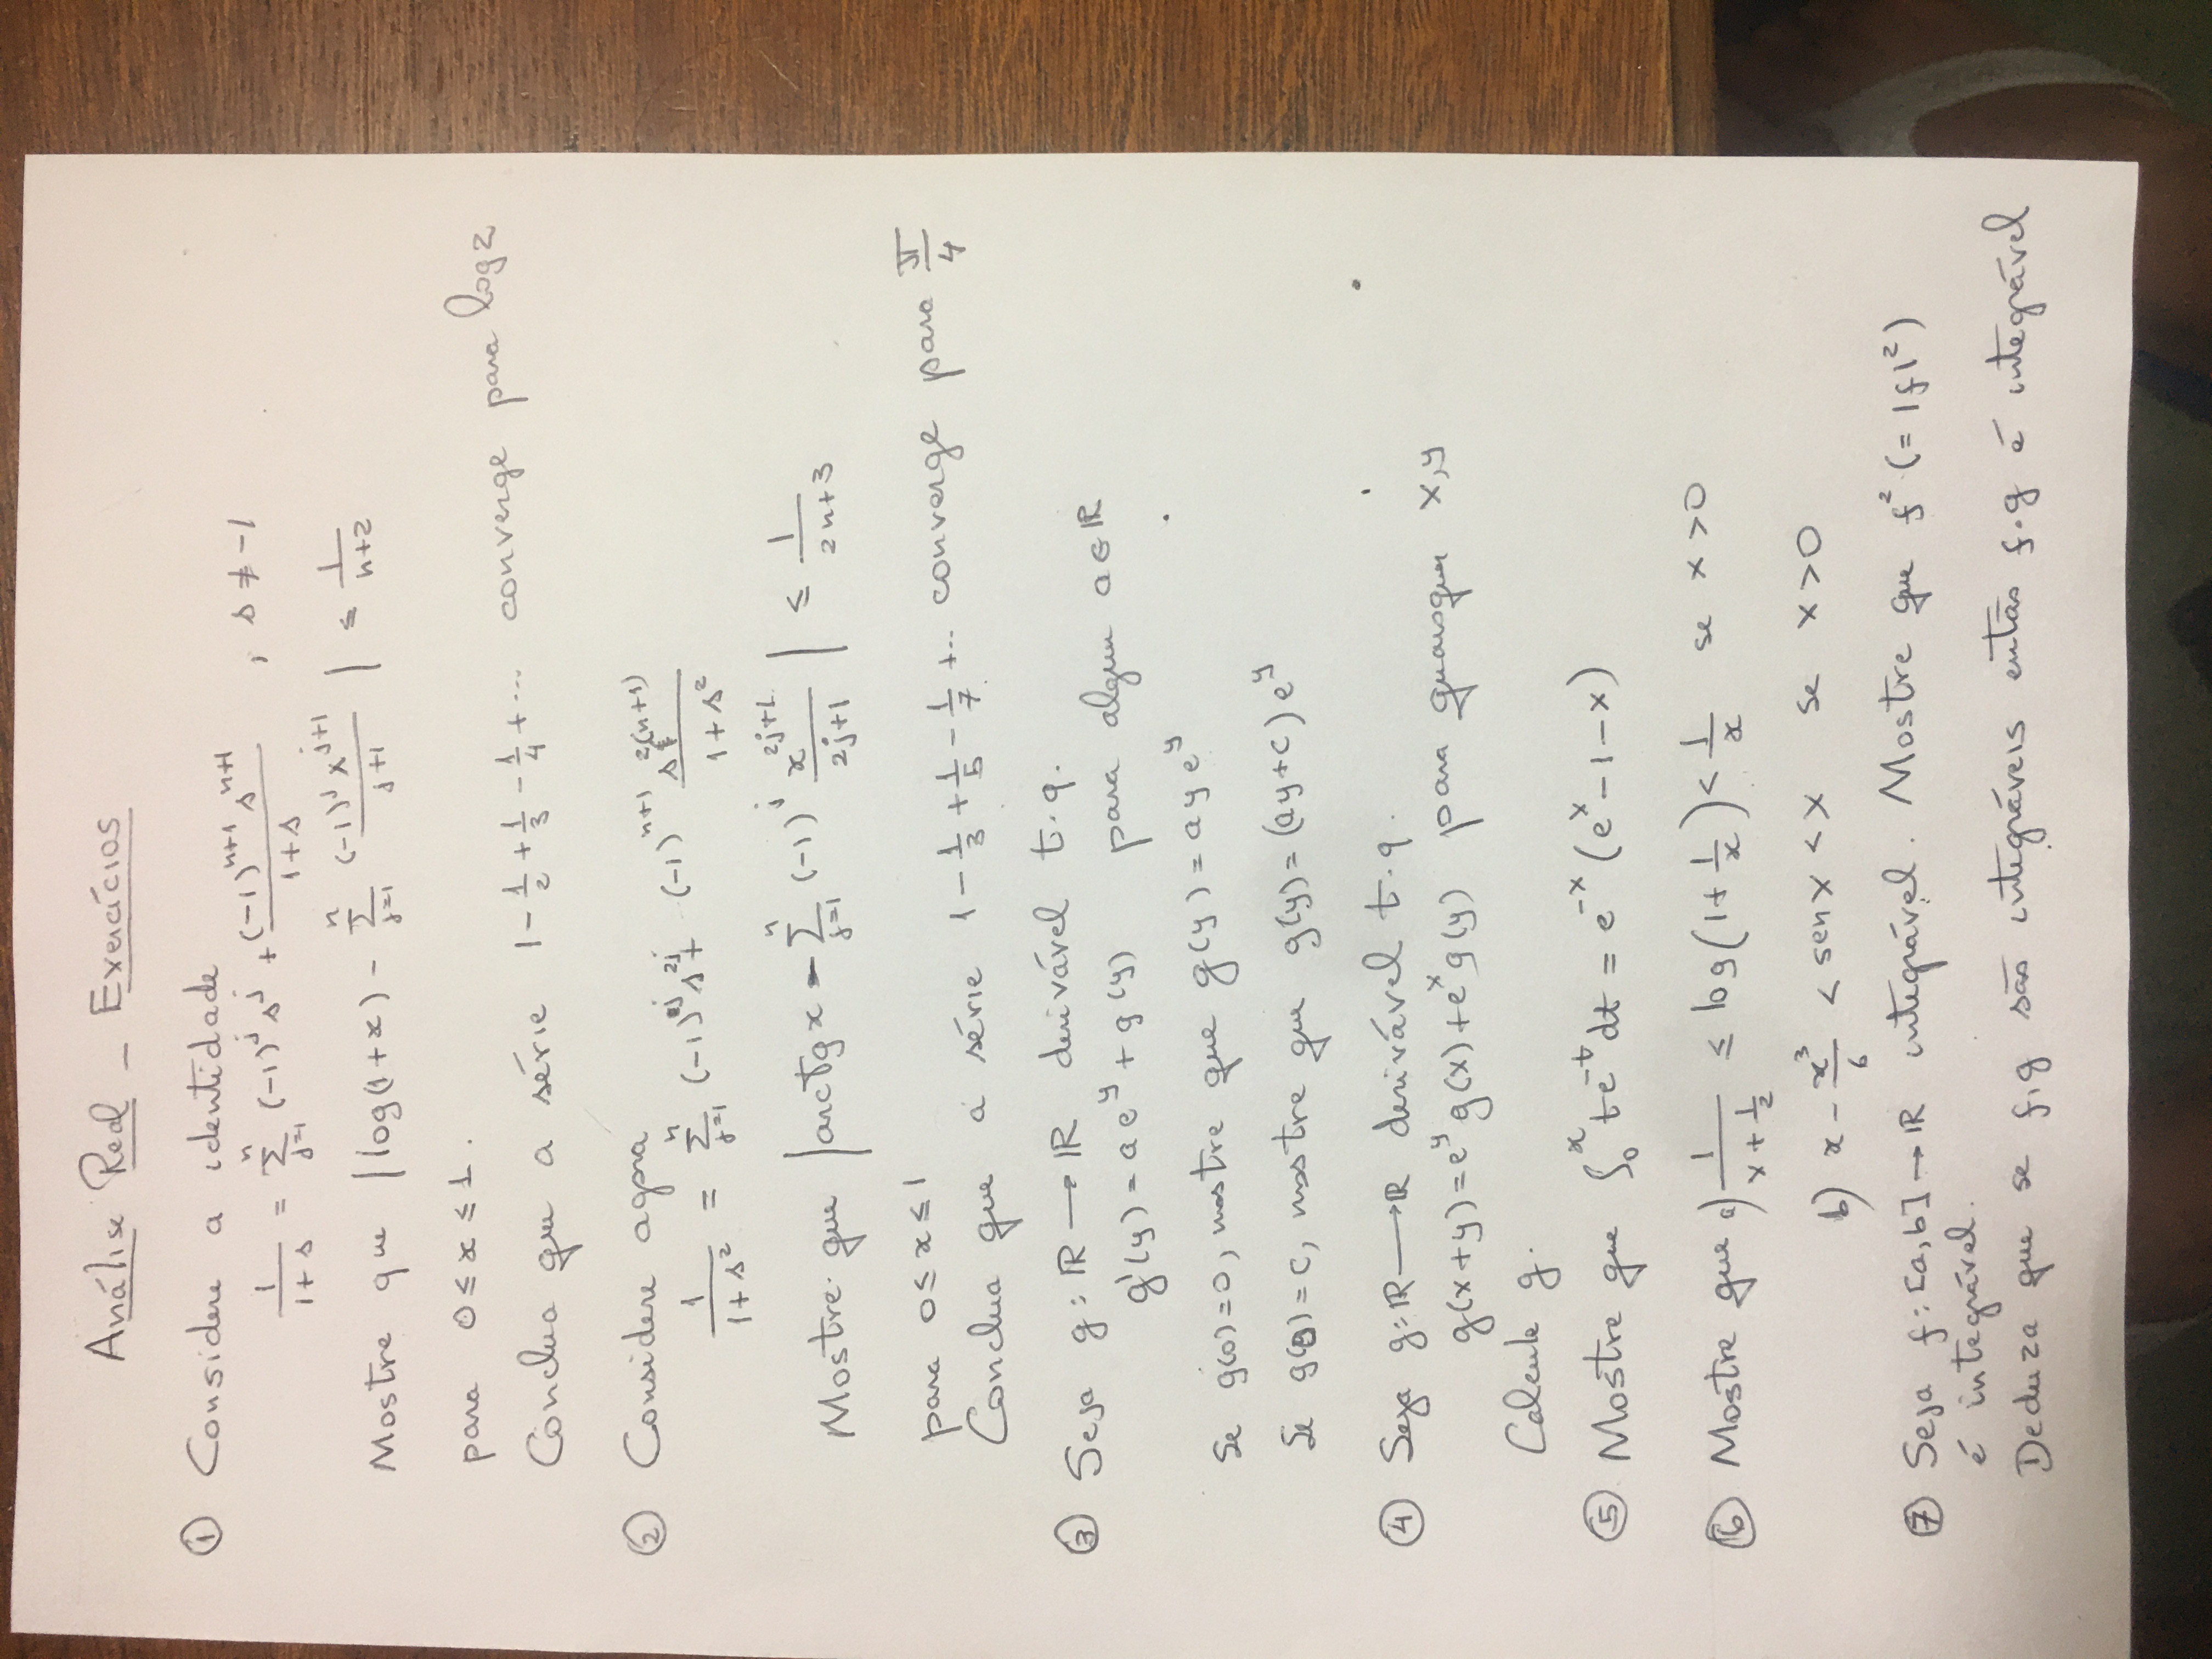 Análise Real - Exercícios
① Considere a identidade
1/(1+s) = Σ_{j=1}^{n} (-1)^j s^j + (-1)^{n+1} s^{n+1}/(1+s) , s ≠ -1
Mostre que |log(1+x) - Σ_{j=1}^{n} (-1)^j x^{j+1}/(j+1)| ≤ 1/(n+2)
para 0 ≤ x ≤ 1.
Conclua que a série 1 - 1/2 + 1/3 - 1/4 + ... converge para log 2
② Considere agora
1/(1+s²) = Σ_{j=1}^{n} (-1)^j s^{2j} + (-1)^{n+1} s^{2(n+1)}/(1+s²)
Mostre que |arctg x - Σ_{j=1}^{n} (-1)^j x^{2j+1}/(2j+1)| ≤ 1/(2n+3)
para 0 ≤ x ≤ 1
Conclua que a série 1 - 1/3 + 1/5 - 1/7 + ... converge para π/4
③ Seja g: ℝ → ℝ derivável t.q.
g'(y) = a e^y + g(y) para algum a ∈ ℝ
Se g(0) = 0, mostre que g(y) = a y e^y
Se g(0) = c, mostre que g(y) = (ay + c) e^y
④ Seja g: ℝ → ℝ derivável t.q.
g(x+y) = e^y g(x) + e^x g(y) para quaisquer x, y
Calcule g.
⑤ Mostre que ∫_0^x t e^{-t} dt = e^{-x} (e^x - 1 - x)
⑥ Mostre que a) 1/(x + 1/2) ≤ log(1 + 1/x) < 1/x se x > 0
b) x - x³/6 < sen x < x se x > 0
⑦ Seja f: [a, b] → ℝ integrável. Mostre que f² (= |f|²)
é integrável.
Deduza que se f, g são integráveis então f.g é integrável